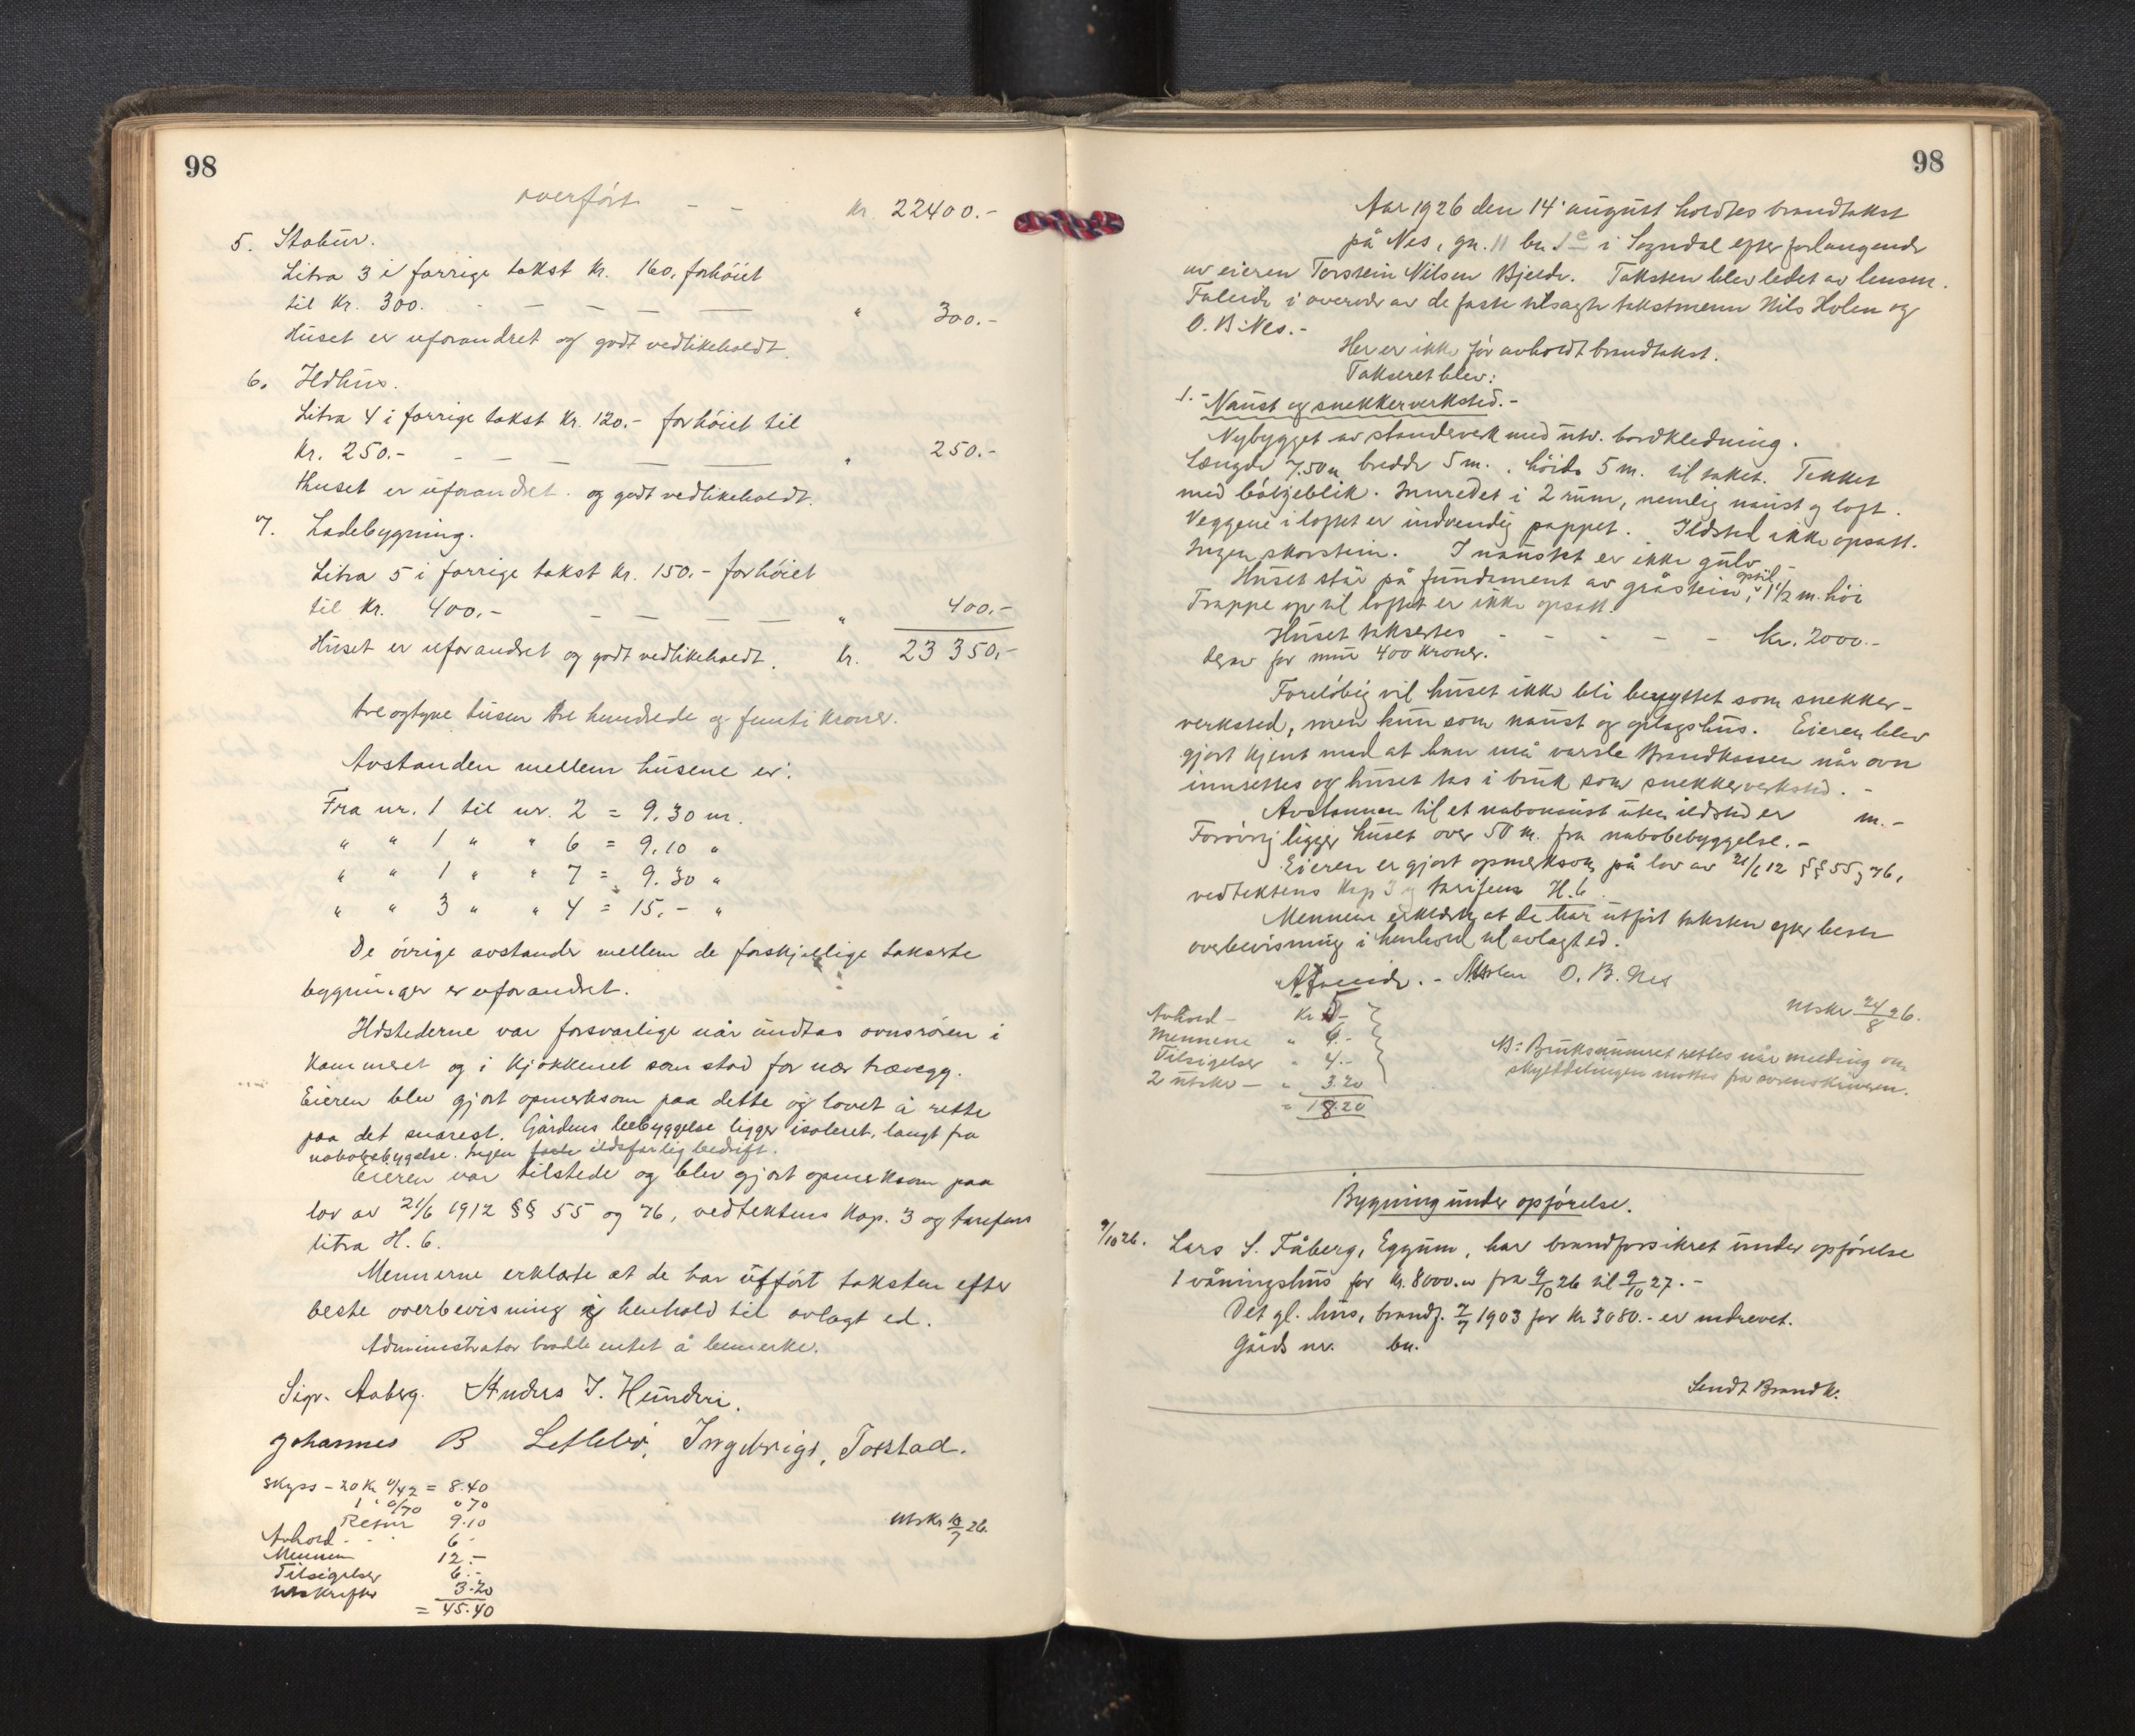 98
overført - - kr. 22400.-
5. Stabur.
Litra 3 i forrige takst kr. 160, forhöiet
til kr. 300. - - - - " 300.-
Huset er uforandret og godt vedlikeholdt.
6. Ildhus.
Litra 4 i forrige takst kr. 120.- forhöiet til
kr. 250.- - - - " 250.-
Huset er uforandret og godt vedlikeholdt.
7. Ladebygning.
Litra 5 i forrige takst kr. 150.- forhöiet
til kr. 400,- - - - - " 400.-
Huset er uforandret og godt vedlikeholdt. kr. 23 350,-
treogtyve tusen tre hundrede og femti kroner.
Avstanden mellem husene er:
Fra nr. 1 til nr. 2 = 9.30 m.
" " 1 " " 6 = 9.10 "
" " 1 " " 7 = 9.30 "
" " 3 " " 4 = 15.- "
De övrige avstander mellem de forskjellige takserte
bygninger er uforandret.
Ildstederne var forsvarlige når undtas ovnsrören i
kammeret og i kjökkenet som stod for nær trævegg.
Eieren blev gjort opmerksom paa dette og lovet å rette
paa det snarest. Gårdens bebyggelse ligger isoleret, langt fra
nabobebygelse. Ingen ildsfarlig bedrift.
Eieren var tilstede og blev gjort opmerksom paa
lov av 21/6 1912 §§ 55 og 76, vedtektens kap. 3 og tarifens
litra H. 6.
Mennerne erklærte at de har utfört taksten efter
beste overbevisning i henhold til avlagt ed.
Administrator hadde intet å bemerke.
Sign. Aaberg. Anders J. Hunderi.
Johannes B Letlebö, Ingebrigt, Torstad.
Skyss - 20 km 0/42 = 8.40
1 " 0/70 " 70
Retur 9.10
Avhold - - 6 -
Mennene 12.-
Tilsigelser 6.-
utskrifter 3.20
= 45.40
utskr 10/7 26.
98
Aar 1926 den 14' august holdtes brandtakst
på Nes, gn. 11 bn. 1 i Sogndal efter forlangende
av eieren Torstein Nilsen Bjelde. Taksten blev ledet av lensm.
Faleide i overvær av de faste tilsagte takstmenn Nils Holen og
O. B. Nes.-
Her er ikke för avholdt brandtakst.
Takseret blev:
1.- Naust og snekkerverksted.-
Nybygget av standerverk med utv. bordkledning.
Længde 7.50 m bredde 5 m. höide 5 m. til taket. Tekket
med bölgeblik. Innredet i 2 rum, nemlig naust og loft.
Veggene i loftet er indvendig pappet. Ildsted ikke opsatt.
Ingen skorstein. I naustet er ikke gulv.
Huset står på fundament av gråstein, optil 1 1/2 m. höi
Trappe op til loftet er ikke opsatt.
Huset taksertes - - - - - kr. 2000.-
derav for mur 400 kroner.
Forelöbig vil huset ikke bli benyttet som snekker-
verksted, men kun som naust og oplagshus. Eieren blev
gjort kjent med at han må varsle Brandkassen når ovn
innsettes og huset tas i bruk som snekkerverksted. -
Avstannen til et nabonaust uten ildsted er m.-
Forövrig ligger huset over 50 m. fra nabobebyggelse.-
Eieren er gjort opmerksom på lov av 21/6 12 §§ 55 og 76,
vedtektens kap 3 og tarifens H.6
Mennene erklærte at de har utfört taksten efter beste
overbevisning i henhold til avlagt ed.
AFaleide. - NHolen O. B. Nes
Avhold - kr 5.-
Mennene " 6.-
Tilsigelser " 4.-
2 utskr - " 3.20
= 18.20
utskr 24/8 26.
NB: Bruksnumret rettes når melding om
skylddelingen mottas fra sorenskriveren.
Bygning under opförelse.
9/10 26. Lars S. Fåberg, Eggum, har brandforsikret under opförelse
1 våningshus for kr. 8000.00 fra 9/10 26 til 9/10 27.-
Det gl. hus, brandf. 7/7 1903 for kr 3080.- er nedrevet.
Gårds nr. bn.
Sendt Brandk.